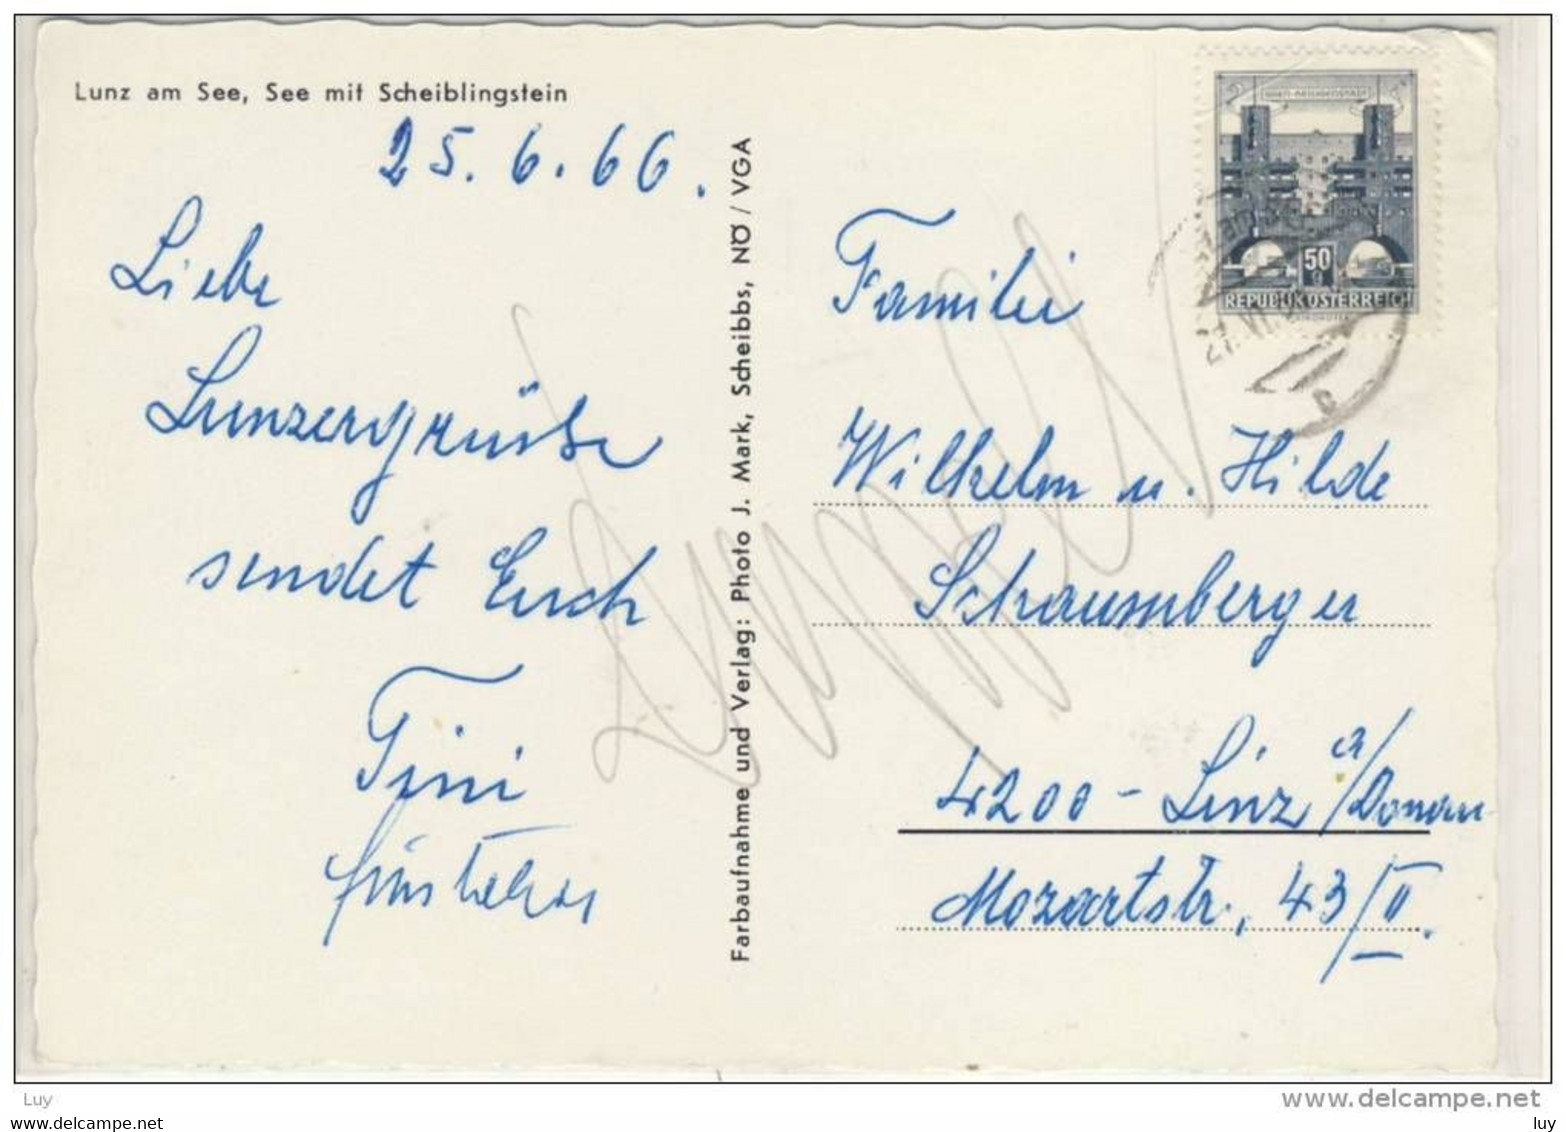 Lunz am See, See mit Scheiblingstein
25.6.66.
Liebe
Lunzergrüße
sendet Euch
Tini
Farbaufnahme und Verlag: Photo J. Mark, Scheibbs, NÖ / VGA
50
g
REPUBLIK ÖSTERREICH
27.VI.
Familie
Wilhelm u. Hilde
Schaumberger
4200 - Linz a/Donau
Mozartstr. 43/II.
Luy
www.delcampe.net
www.delcampe.net
luy